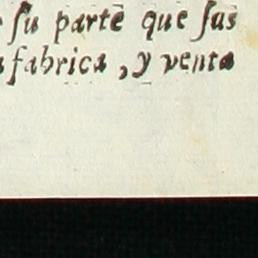 ſu parte que ſus
fabrica, y venta